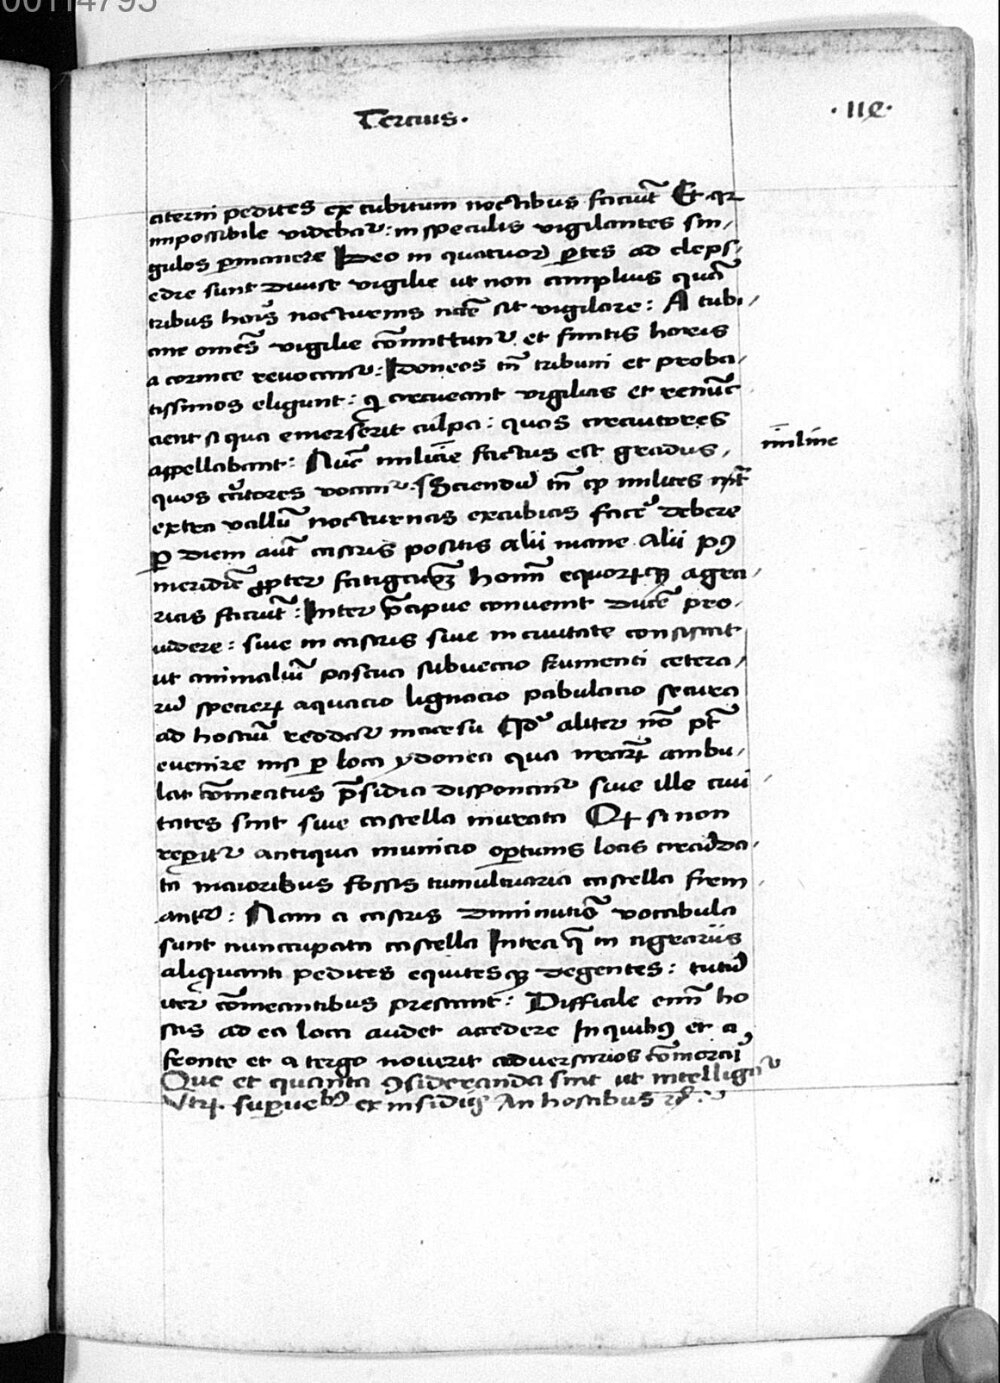 00114795
Tercius.
·110·
citerni pedites excubitum noctibus faciūt Et qꝛ
impossibile videbatᷣ: in speculis vigilantes sin/
gulos ꝑmanere Ideo in quatuoꝛ ꝑtes ad cleps/
edre sunt diuise vigilie ut non amplius quā
tribus horis nocturnis necē sit vigilare: A tubi/
cine omēs vigilie cōmittuntᷣ et finitis horis
a cornice reuocantᷣ: Idoneos tn̄ tribuni et proba/
tissimos eligunt: qͥ circueant vigilias et renūc
cient si qua emerserit culpa: quos circuitores
appellabant: Nūc milicie factus est gradus/
milicie
quos cͥcͥtores vocantᷣ. Sciendū tn̄ ꝙ milites
extra vallū nocturnas excubias facẽ debere
ꝑ diem aūt castris positis alii mane alii pꝰ
meridiē ꝓpter fatigacōꝫ hoīm equoꝝqꝫ agra/
rias faciūt: Inter p̄cipue conuenit ducē pro/
uidere: siue in castris siue in ciuitate consistit
ut animaliū pascua subuectio frumenti cetera/
rū specieꝝ aquacio lignacio pabulacio secura
ad hostiū reddatᷣ incursu Qdͦ aliter nō pt̄
euenire nisi ꝑ loca ydonea qua nr̄aꝝ ambu/
lat cōmeatus p̄sidia disponantᷣ siue ille ciui
tates sint siue castella murata Qꝙ si non
reperitᷣ antiqua municio oportunis locis circūda/
ta maioribus fossis tumultuaria castella firm/
antᷣ: Nam a castris diminutiuo vocabulo
sunt nuncupata castella Intra q̄ in agrariis
aliquanti pedites equitesqꝫ degentes: tutū
iter cōmeantibus prestant: Difficile enī ho
stis ad ea loca audet accedere In quibꝰ et a
fronte et a tergo nouerit aduersarios cōmorari
Que et quanta ꝯsideranda sint ut intelligatᷣ
ex insidiis An hostibus